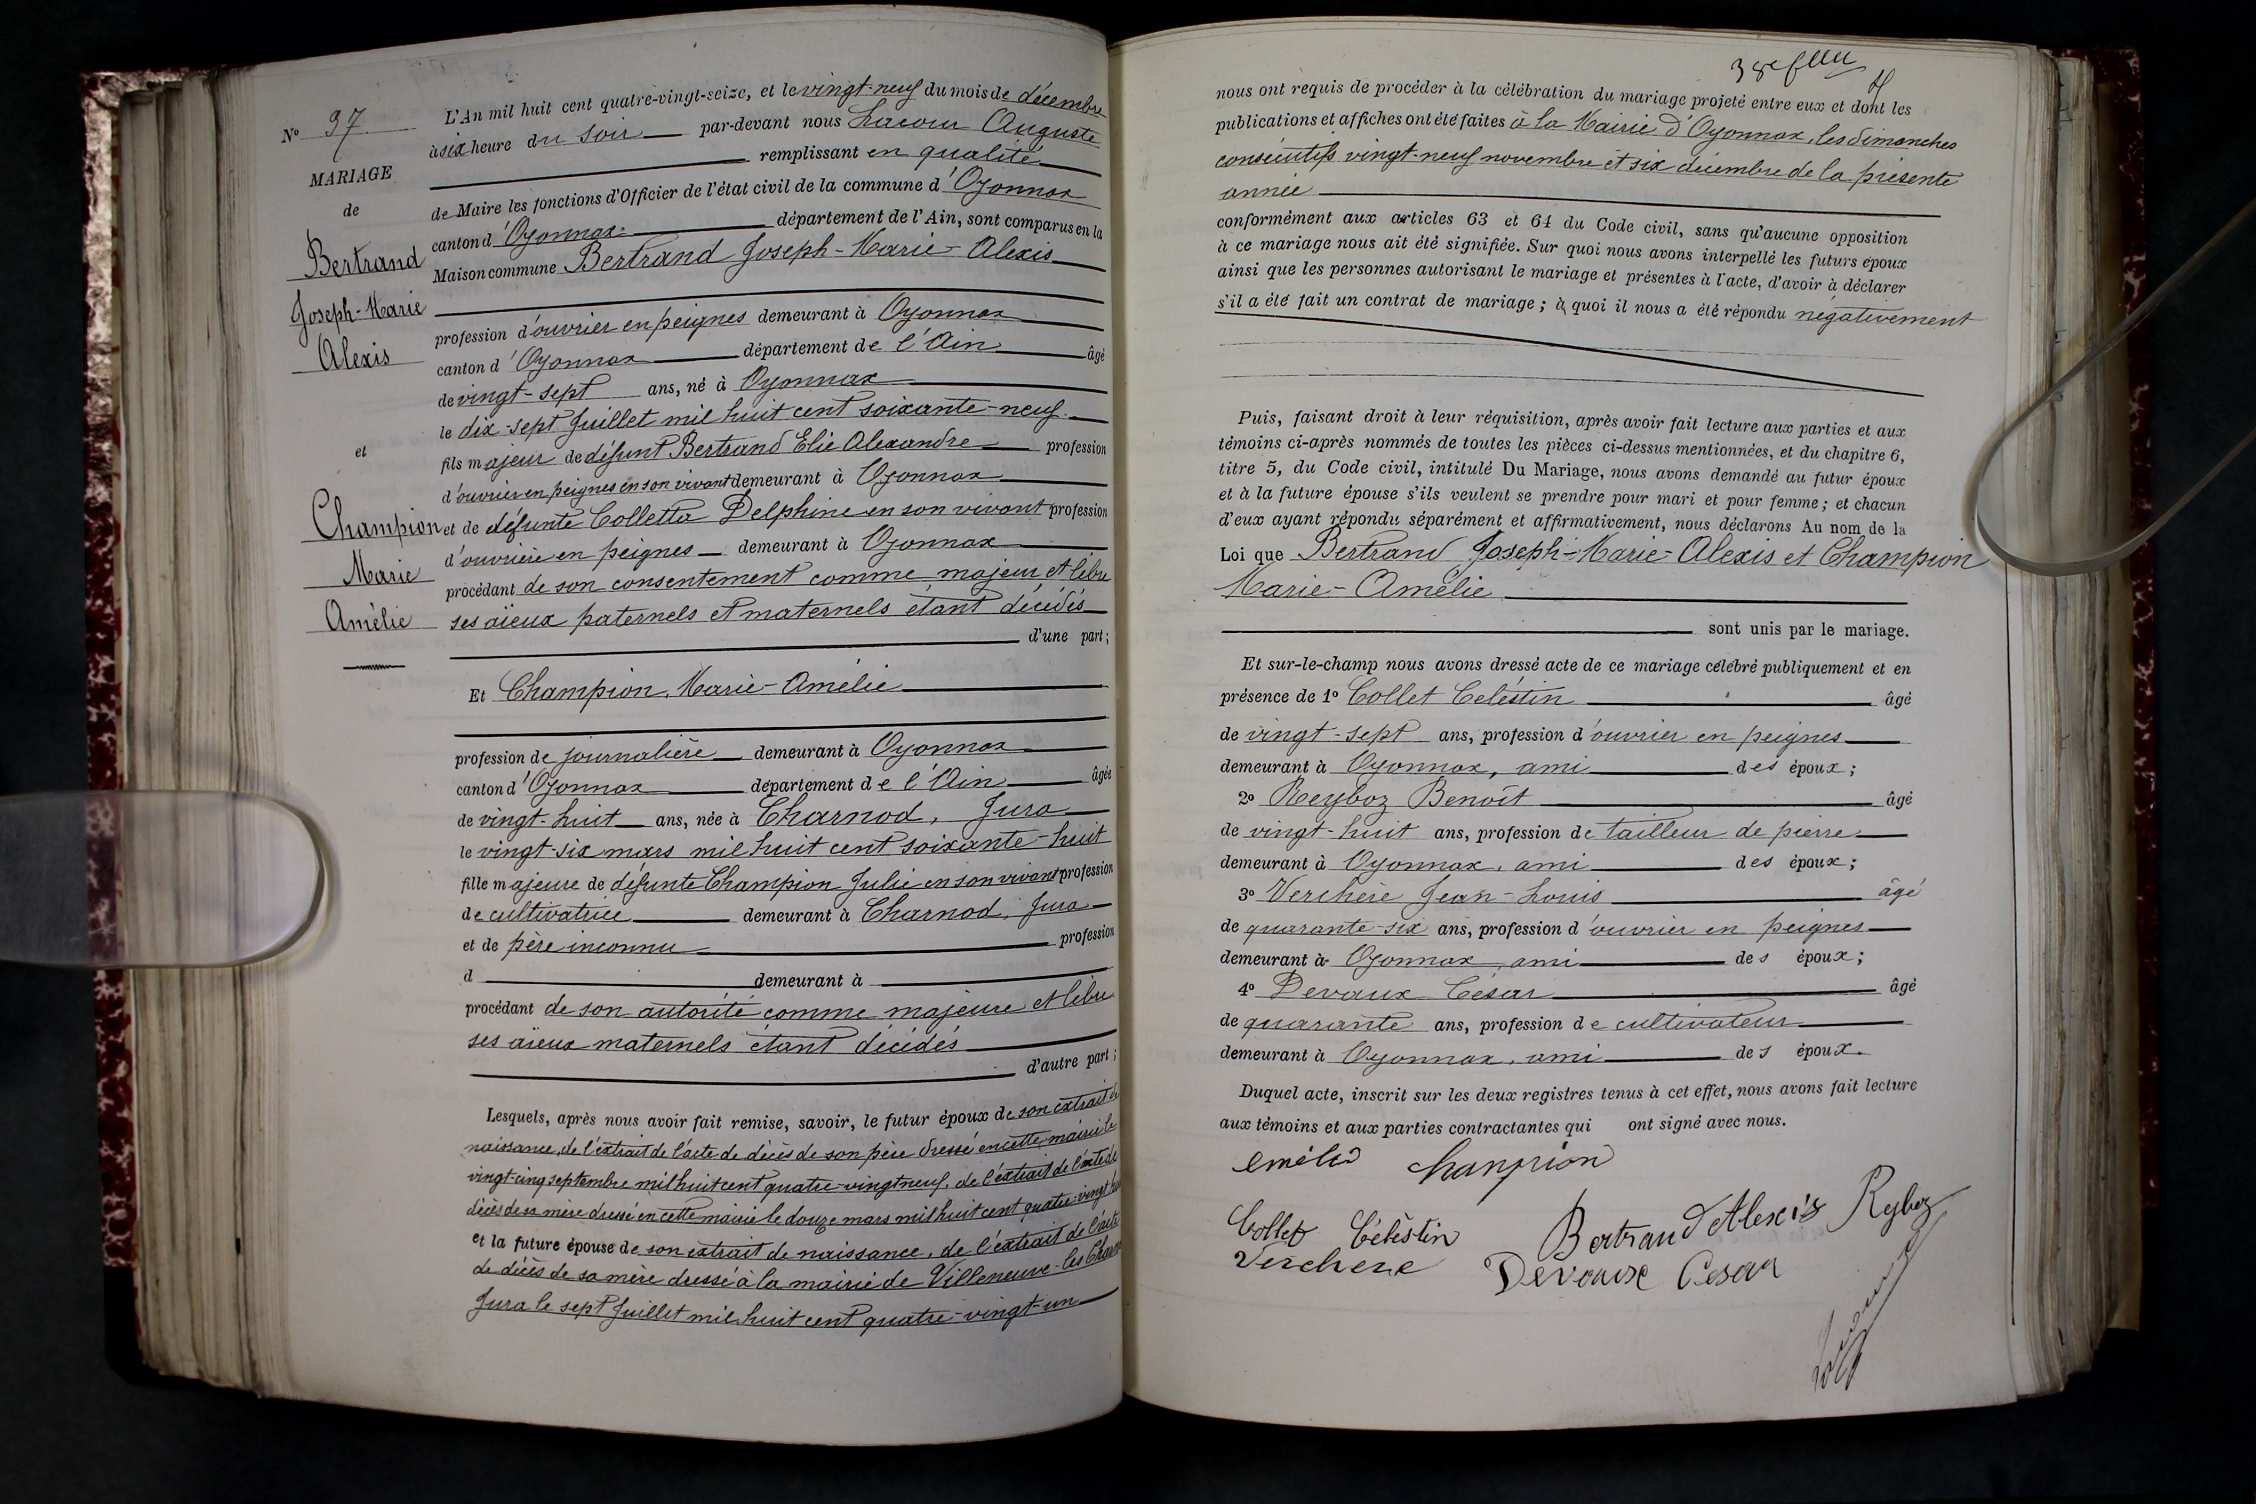 N° 37
MARIAGE
de
Bertrand
Joseph-Marie
Alexis
et
Champion
Marie
Amélie
L'An mil huit cent quatre-vingt-seize, et le vingt-neuf du mois de décembre
à six heure du soir par-devant nous Lacour Auguste
remplissant en qualité
de Maire les fonctions d'Officier de l'état civil de la commune d'Oyonnax
canton d'Oyonnax département de l'Ain, sont comparus en la
Maison commune Bertrand Joseph-Marie-Alexis
profession d'ouvrier en peignes demeurant à Oyonnax
canton d'Oyonnax département de l'Ain âgé
de vingt-sept ans, né à Oyonnax
le dix-sept Juillet mil huit cent soixante-neuf
fils majeur de défunt Bertrand Elie Alexandre profession
d'ouvrier en peignes en son vivant demeurant à Oyonnax
et de défunte Colletta Delphine en son vivant profession
d'ouvrière en peignes demeurant à Oyonnax
procédant de son consentement comme majeur et libre
ses aïeux paternels et maternels étant décédés
d'une part;
Et Champion, Marie-Amélie
profession de journalière demeurant à Oyonnax
canton d'Oyonnax département de l'Ain âgée
de vingt-huit ans, née à Charnod, Jura
le vingt-six mars mil huit cent soixante-huit
fille majeure de défunte Champion Julie en son vivant profession
de cultivatrice demeurant à Charnod, Jura
et de père inconnu profession
d demeurant à
procédant de son autorité comme majeure et libre
ses aïeux maternels étant décédés
d'autre part;
Lesquels, après nous avoir fait remise, savoir, le futur époux de son extrait de
naissance, de l'extrait de l'acte de décès de son père dressé en cette mairie le
vingt-cinq septembre mil huit cent quatre-vingt neuf, de l'extrait de l'acte de
décès de sa mère dressé en cette mairie le douze mars mil huit cent quatre-vingt
et la future épouse de son extrait de naissance, de l'extrait de l'acte
de décès de sa mère dressé à la mairie de Villeneuve-les-Charnod
Jura le sept Juillet mil huit cent quatre-vingt-un
nous ont requis de procéder à la célébration du mariage projeté entre eux et dont les
publications et affiches ont été faites à la Mairie d'Oyonnax, les dimanches
consécutifs vingt-neuf novembre et six décembre de la présente
année
conformément aux articles 63 et 64 du Code civil, sans qu'aucune opposition
à ce mariage nous ait été signifiée. Sur quoi nous avons interpellé les futurs époux
ainsi que les personnes autorisant le mariage et présentes à l'acte, d'avoir à déclarer
s'il a été fait un contrat de mariage; à quoi il nous a été répondu négativement
Puis, faisant droit à leur réquisition, après avoir fait lecture aux parties et aux
témoins ci-après nommés de toutes les pièces ci-dessus mentionnées, et du chapitre 6,
titre 5, du Code civil, intitulé Du Mariage, nous avons demandé au futur époux
et à la future épouse s'ils veulent se prendre pour mari et pour femme; et chacun
d'eux ayant répondu séparément et affirmativement, nous déclarons Au nom de la
Loi que Bertrand Joseph-Marie-Alexis et Champion
Marie-Amélie
sont unis par le mariage.
Et sur-le-champ nous avons dressé acte de ce mariage célébré publiquement et en
présence de 1° Collet Celéstin âgé
de vingt-sept ans, profession d'ouvrier en peignes
demeurant à Oyonnax, ami des époux;
2° Reyboz Benoît âgé
de vingt-huit ans, profession de tailleur de pierre
demeurant à Oyonnax, ami des époux;
3° Verchère Jean-Louis âgé
de quarante-six ans, profession d'ouvrier en peignes
demeurant à Oyonnax, ami des époux;
4° Devaux César âgé
de quarante ans, profession de cultivateur
demeurant à Oyonnax, ami des époux.
Duquel acte, inscrit sur les deux registres tenus à cet effet, nous avons fait lecture
aux témoins et aux parties contractantes qui ont signé avec nous.
emélie Champion
Collet Célèstin Bertrand Alexis Ryboz
Verchere Devaux Cesar